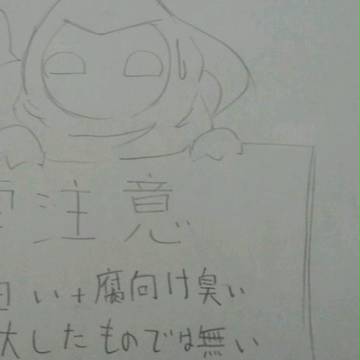 注意
い+腐向け臭い
大したものでは無い